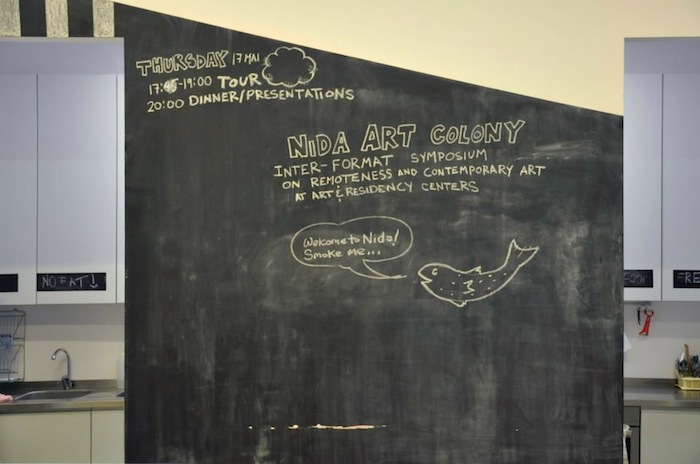 THURSDAY 17 MAI
17:45-19:00 TOUR
20:00 DINNER/PRESENTATIONS
NIDA ART COLONY
INTER-FORMAT SYMPOSIUM
ON REMOTENESS AND CONTEMPORARY ART
AT ART & RESIDENCY CENTERS
Welcome to Nida!
Smoke me...
NO EAT!
FRE